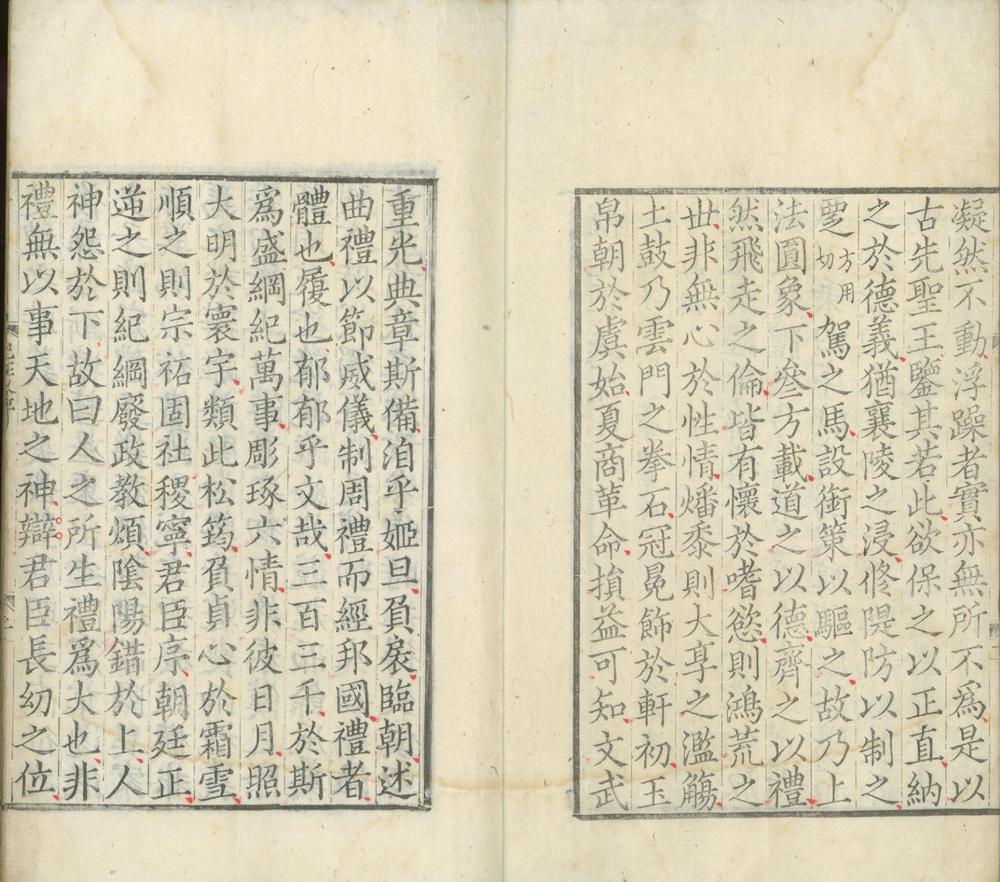 凝然不動浮躁者實亦無所不為是以
古先聖王鑒其若此欲保之以正直納
之於德義猶襄陵之浸修隄防以制之
覂方用切駕之馬設銜策以驅之故乃上
法圓象下參方載道之以德齊之以禮
然飛走之倫皆有懷於嗜慾則鴻荒之
世非無心於性情燔黍則大享之濫觴
土鼓乃雲門之拳石冠冕飾於軒初玉
帛朝於虞始夏商革命損益可知文武
重光典章斯備洎乎姬旦負扆臨朝述
曲禮以節威儀制周禮而經邦國禮者
體也履也郁郁乎文哉三百三千於斯
為盛綱紀萬事彫琢六情非彼日月照
大明於寰宇類此松筠負貞心於霜雪
順之則宗祏固社稷寧君臣序朝廷正
逆之則紀綱廢政教煩陰陽錯於上人
神怨於下故曰人之所生禮為大也非
禮無以事天地之神辯君臣長幼之位